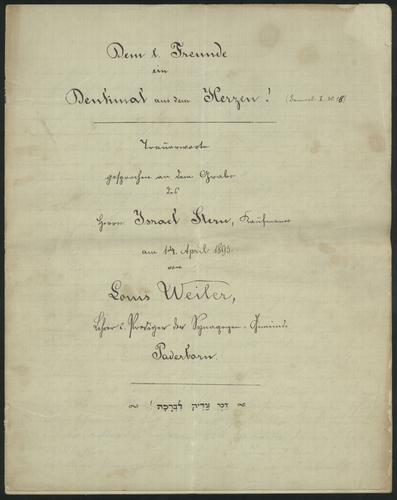 Dem l. Freunde
ein
Denkmal aus dem Herzen! (Samuel I. 20. 18)
Trauerworte
gesprochen an dem Grabe
des
Herrn Israel Stern, Kaufmann
am 14. April 1893
von
Louis Weiler,
Lehrer u. Prediger der Synagogen-Gemeinde
Paderborn.
זכר צדיק לברכה!